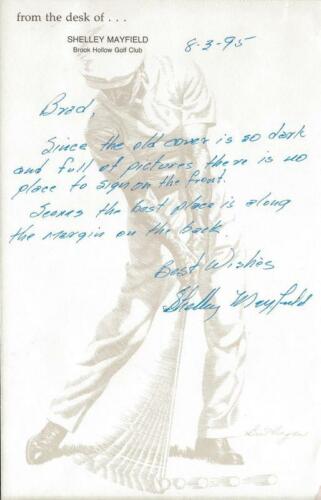 from the desk of . . .
SHELLEY MAYFIELD
Brook Hollow Golf Club
8-3-95
Brad,
Since the old cover is so dark
and full of pictures there is no
place to sign on the front.
Seems the best place is along
the margin on the back.
Best Wishes
Shelley Mayfield
Ben Hogan